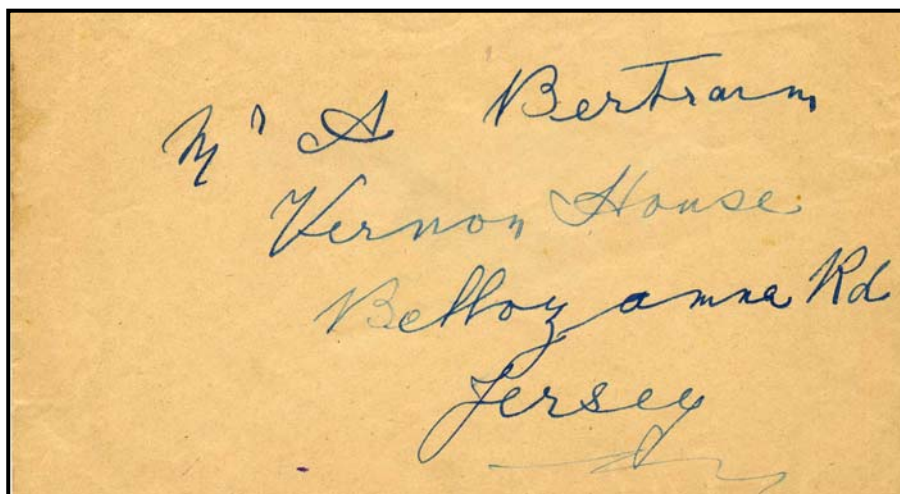 Mr A Bertram
Vernon House
Bellozanna Rd
Jersey